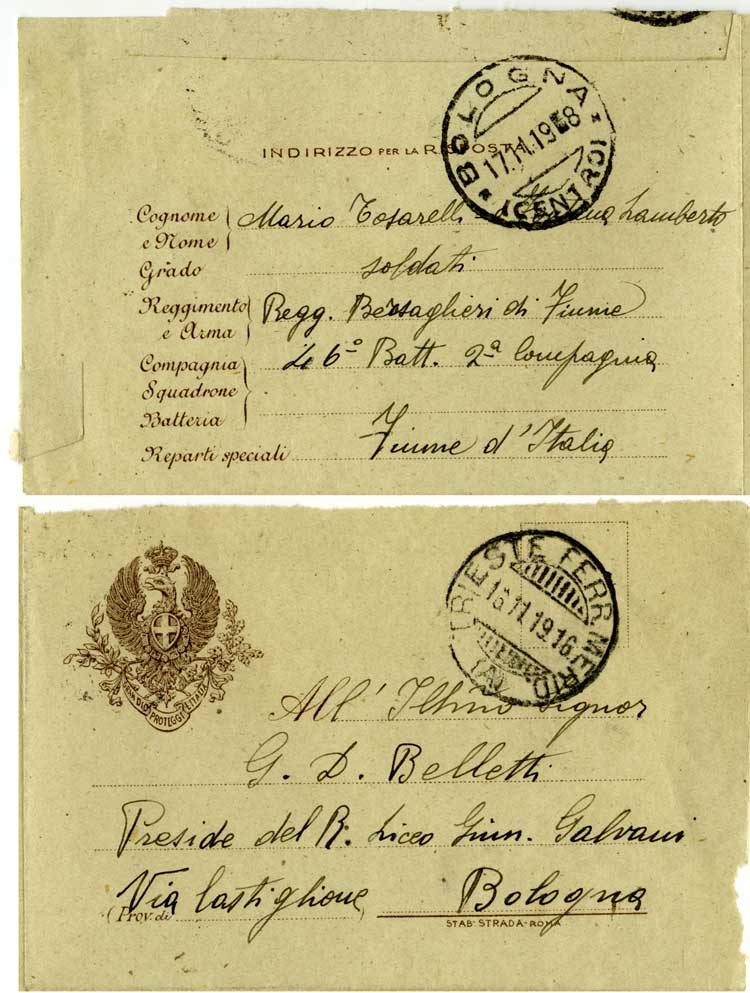 BOLOGNA
17.11.19
8
(CENTRO)
INDIRIZZO PER LA RISPOSTA
Cognome e Nome Mario Tosarelli Lamberto
Grado soldati
Reggimento e Arma Regg. Bersaglieri di Fiume
Compagnia 46º Batt. 2ª Compagnia
Squadrone
Batteria
Reparti speciali Fiume d'Italia
TRIESTE FERR. MERID.
16.11.19.16
(A)
DIO PROTEGGE L'ITALIA
All' Illmo Signor
G. D. Belletti
Preside del R. Liceo Ginn. Galvani
Via Castiglione Bologna
(Prov. di
STAB. STRADA-ROMA